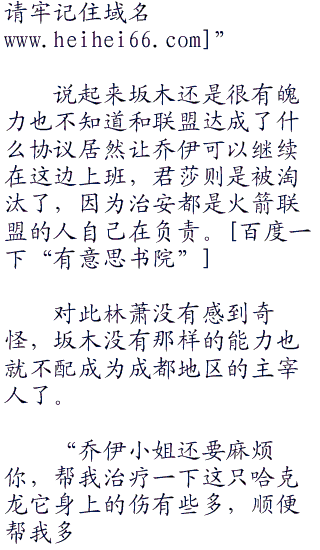 请牢记住域名
www.heihei66.com]”
说起来坂木还是很有魄
力也不知道和联盟达成了什
么协议居然让乔伊可以继续
在这边上班，君莎则是被淘
汰了，因为治安都是火箭联
盟的人自己在负责。[百度一
下“有意思书院”]
对此林萧没有感到奇
怪，坂木没有那样的能力也
就不配成为成都地区的主宰
人了。
“乔伊小姐还要麻烦
你，帮我治疗一下这只哈克
龙它身上的伤有些多，顺便
帮我多